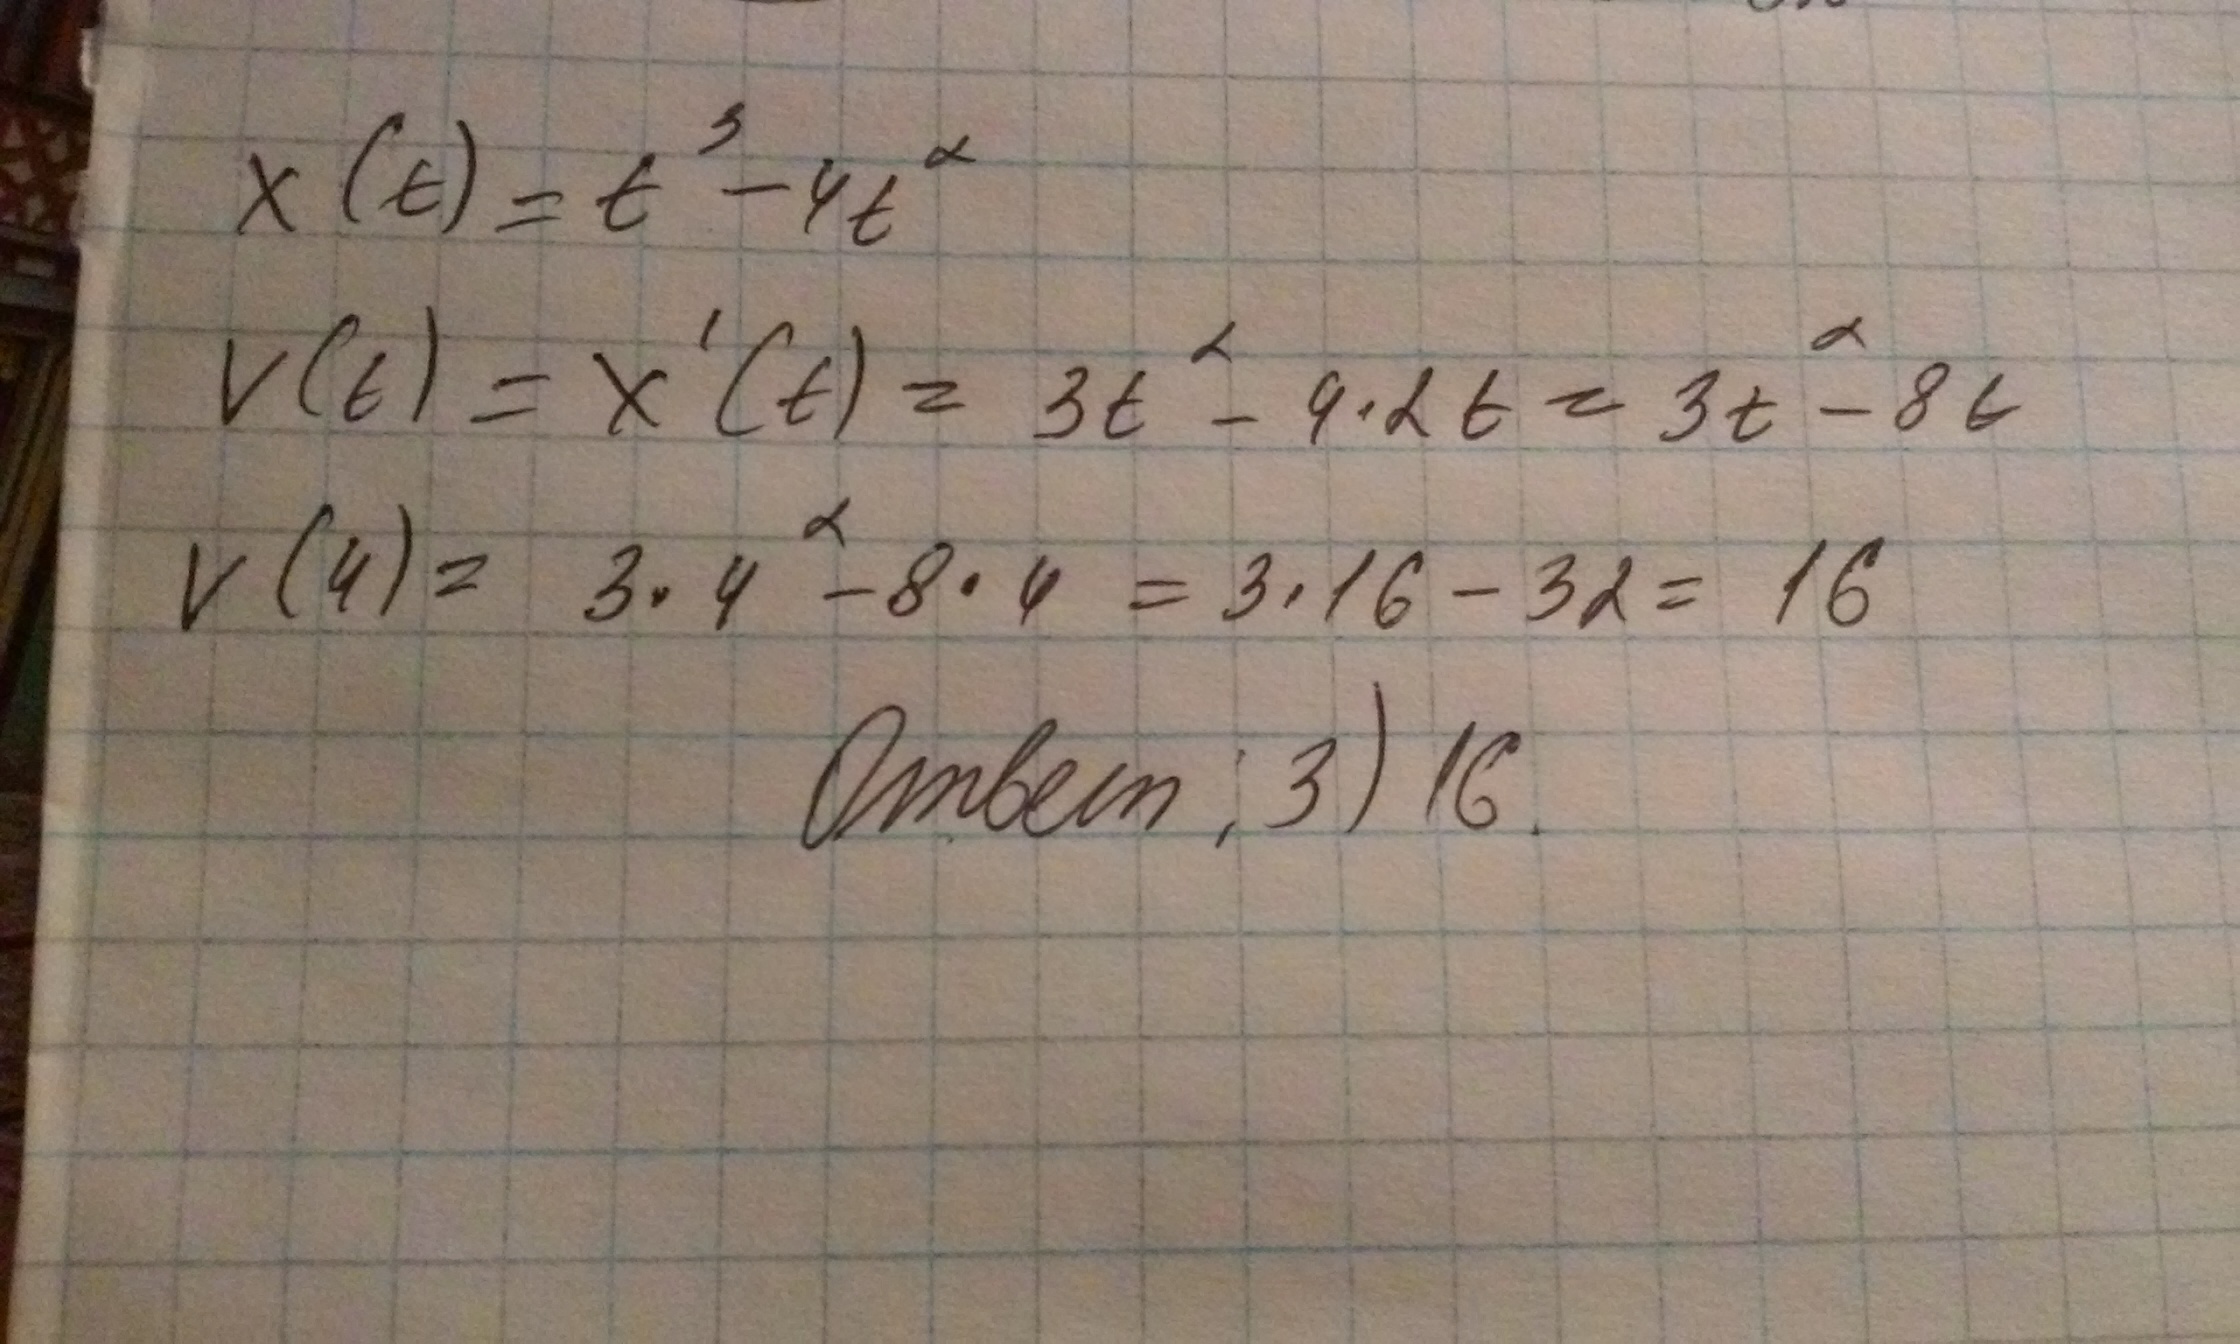 x(t) = t³ - 4t²
v(t) = x'(t) = 3t² - 4·2t = 3t² - 8t
v(4) = 3·4² - 8·4 = 3·16 - 32 = 16
Ответ: 3) 16.